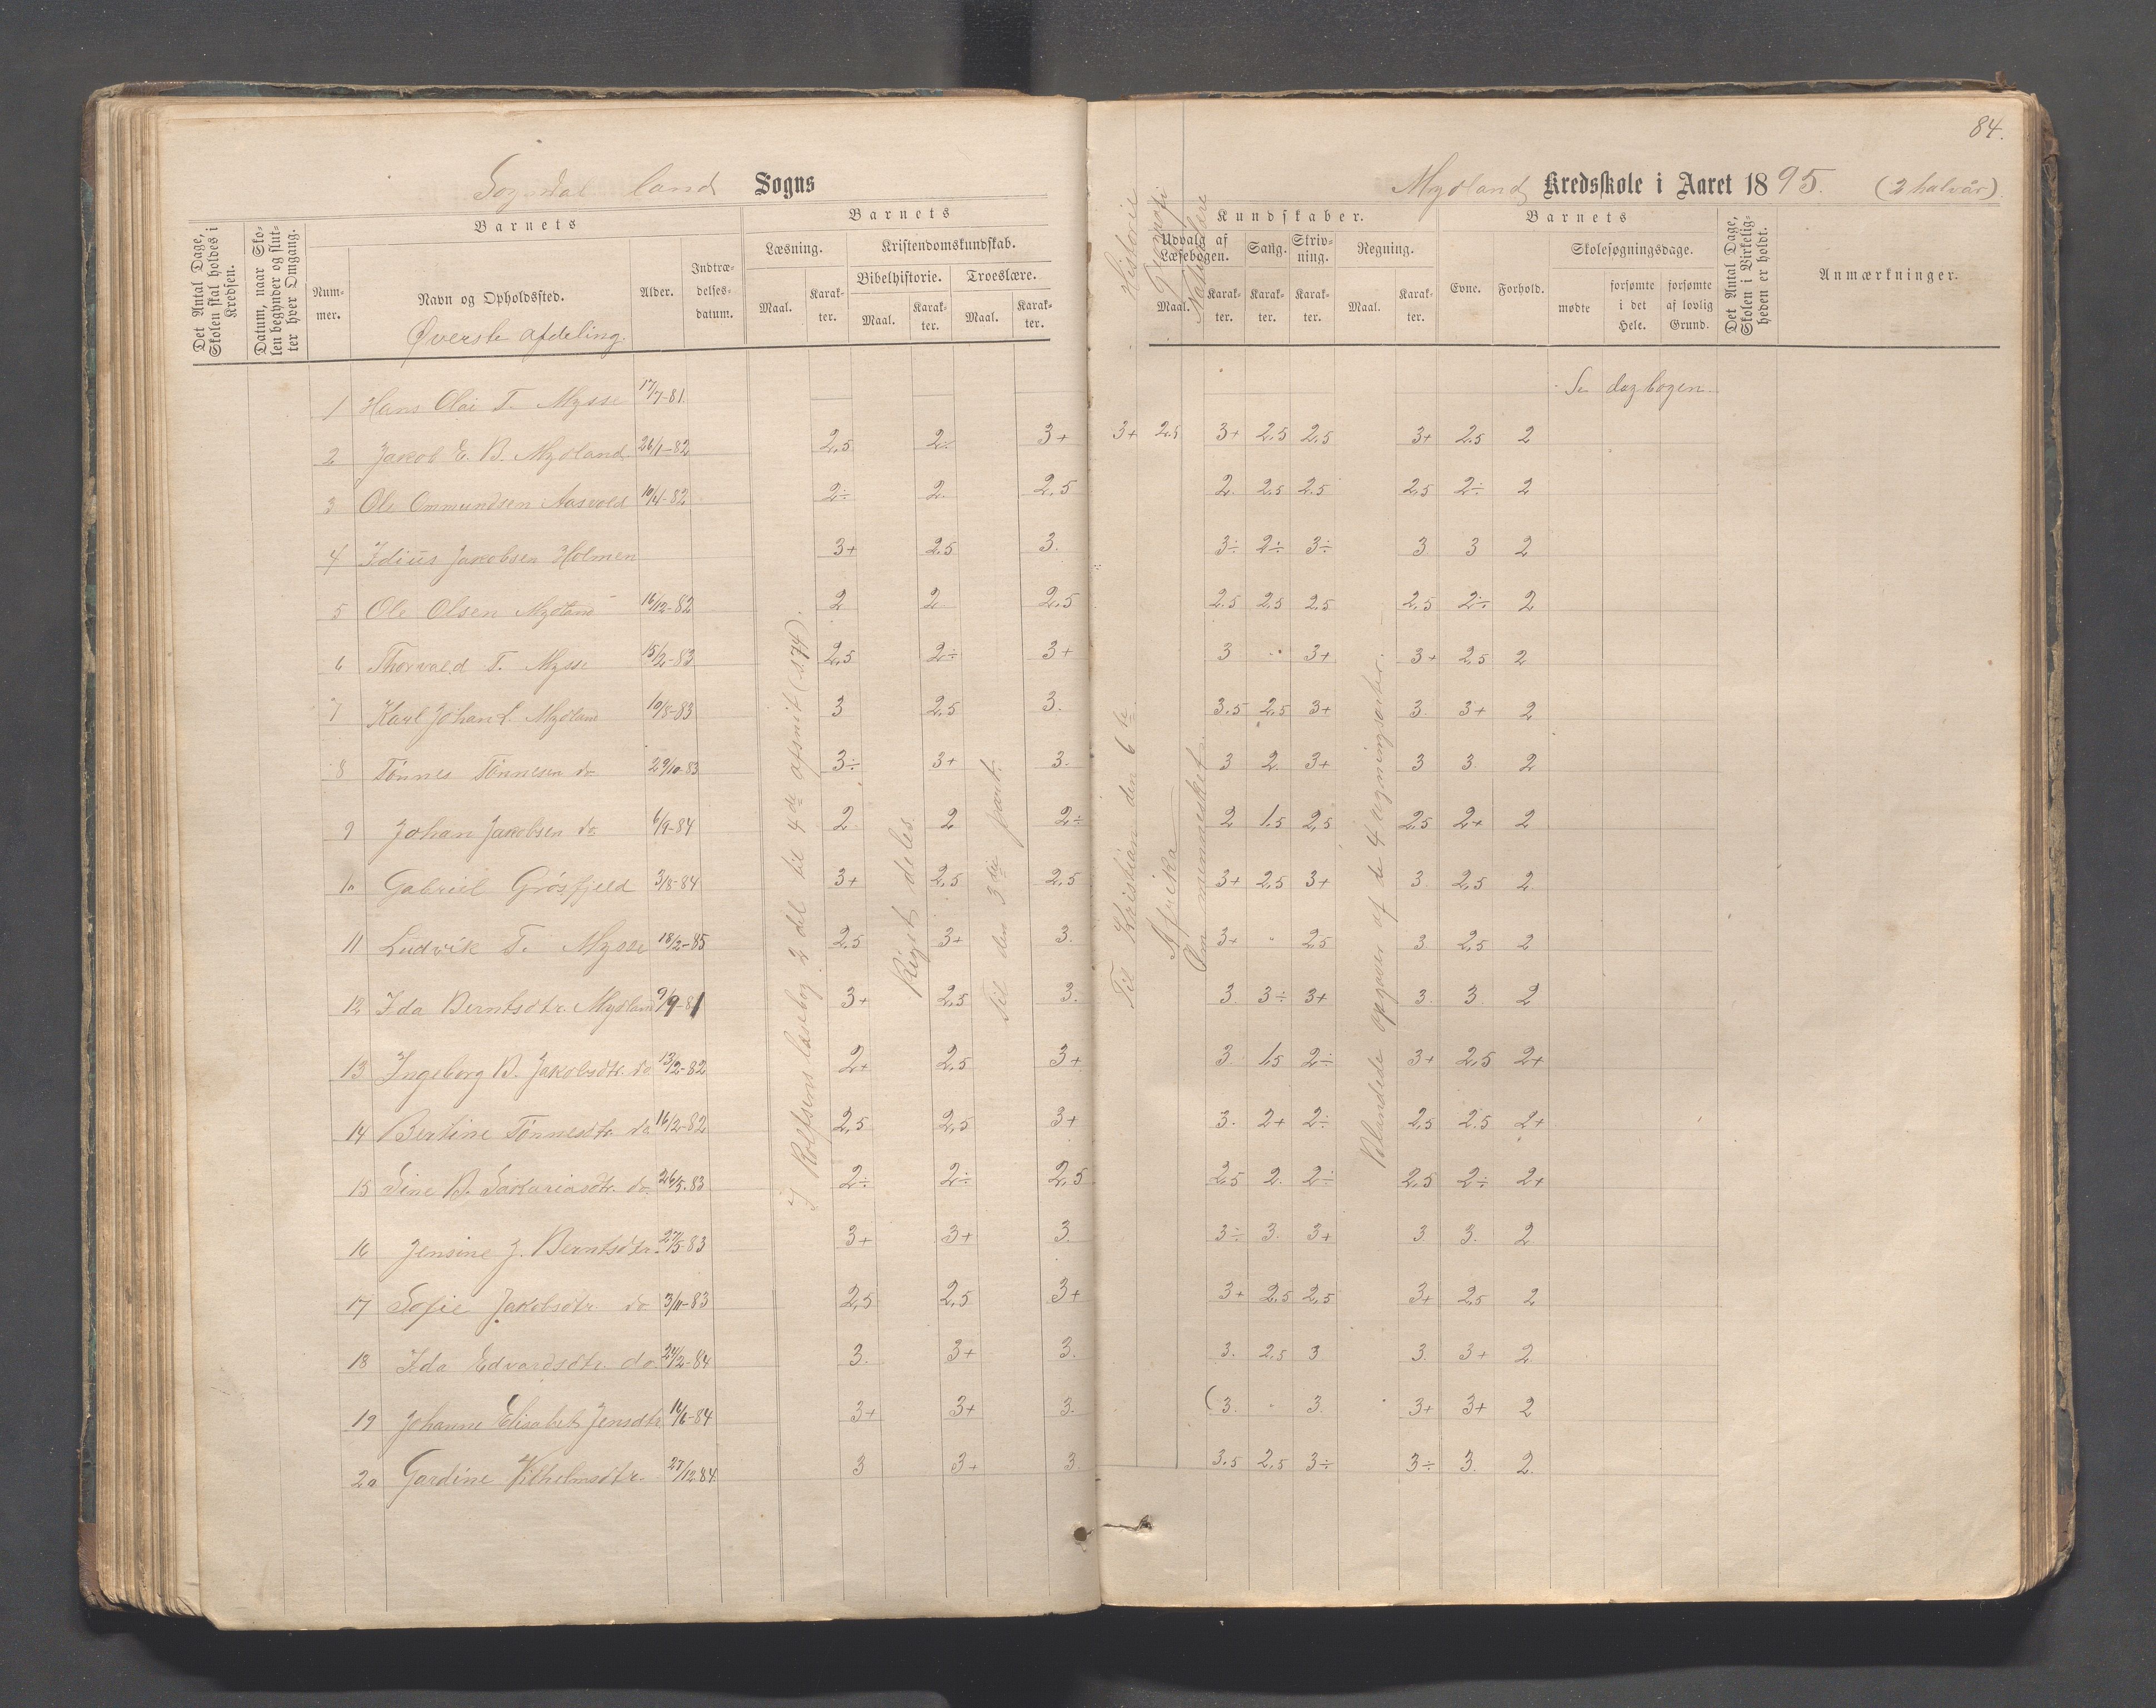 84.
Sogndal land Sogns
Mydland Kredsskole i Aaret 1895. (2 halvår)
Det Antal Dage, Skolen skal holdes i Kredsen.
Datum, naar Skolen begynder og slutter hver Omgang.
Barnets
Nummer.
Navn og Opholdssted.
Alder.
Indtrædelsesdatum.
Barnets
Læsning.
Maal.
Karakter.
Kristendomskundskab.
Bibelhistorie.
Maal.
Karakter.
Troeslære.
Maal.
Karakter.
Historie
Geografi
Naturlære
Kundskaber.
Udvalg af Læsebogen.
Maal.
Karakter.
Sang.
Karakter.
Skrivning.
Karakter.
Regning.
Maal.
Karakter.
Barnets
Evne.
Forhold.
Skolesøgningsdage.
mødte
forsømte i det Hele.
forsømte af lovlig Grund.
Det Antal Dage, Skolen i Virkeligheden er holdt.
Anmærkninger.
Øverste afdeling.
1 Hans Olai T. Mysse 17/7-81 Se dagbogen.
2 Jakob E. B. Mydland 26/1-82 2,5 2÷ 3+ 3+ 2.5 3+ 2.5 2.5 3+ 2.5 2
3 Ole Ommundsen Aasvold 10/4-82 2÷ 2. 2,5 2. 2.5 2.5 2,5 2÷ 2
4 Idius Jakobsen Holmen 3+ 2.5 3. 3÷ 2÷ 3÷ 3 3 2
5 Ole Olsen Mydland 16/12-82 2 2 2,5 2.5 2.5 2.5 2.5 2÷ 2
6 Thorvald T. Mysse 15/2-83 2,5 2÷ 3+ 3 " 3+ 3+ 2.5 2
7 Karl Johan L. Mydland 10/8-83 3 2,5 3. 3.5 2.5 3+ 3. 3+ 2
8 Tønnes Tønnesen do 29/10-83 3÷ 3+ 3. 3 2. 3+ 3 3. 2
9 Johan Jakobsen do 6/9-84 2 2 2÷ 2 1.5 2,5 2.5 2+ 2
10 Gabriel Grøsfjeld 3/8-84 3+ 2,5 2,5 3+ 2,5 3+ 3. 2,5 2
11 Ludvik T. Mysse 18/2-85 2,5 3+ 3. 3+ " 2,5 3 2,5 2
12 Ida Berntsdtr. Mydland 9/9-81 3+ 2,5 3. 3. 3÷ 3+ 3. 3. 2
13 Ingeborg B. Jakobsdtr. do 13/2-82 2+ 2,5 3+ 3. 1,5 2÷ 3+ 2,5 2+
14 Bertine Tønnesdtr. do 16/2-82 2,5 2,5 3+ 3. 2+ 2÷ 2,5 2.5 2+
15 Sine B. Sakariasdtr. do. 26/5-83 2÷ 2÷ 2,5 2,5 2. 2÷ 2,5 2÷ 2+
16 Jensine J. Berntsdtr. 27/5-83 3+ 3+ 3. 3÷ 3. 3+ 3. 3. 2
17 Sofie Jakobsdtr. do 3/11-83 2,5 2,5 3+ 3+ 2,5 2,5 3+ 2,5 2
18 Ida Edvardsdtr. do. 24/2-84 3. 3+ 3. 3. 2.5 3 3. 3+ 2
19 Johanne Elisabet Jensdtr. 14/6-84 3+ 3+ 3. 3. " 3. 3+ 3+ 2
20 Gardine Vilhelmsdtr. 27/12-84 3 3+ 3 3.5 2.5 3÷ 3÷ 3. 2.
I Rolfsens læsebog 2 del til 4de afsnit (s.174).
Rigst deles.
Til den 3die part.
Til Kristian den 6te.
Afrika
Om mennesket.
Blandede opgaver af de 4 regningsarter.